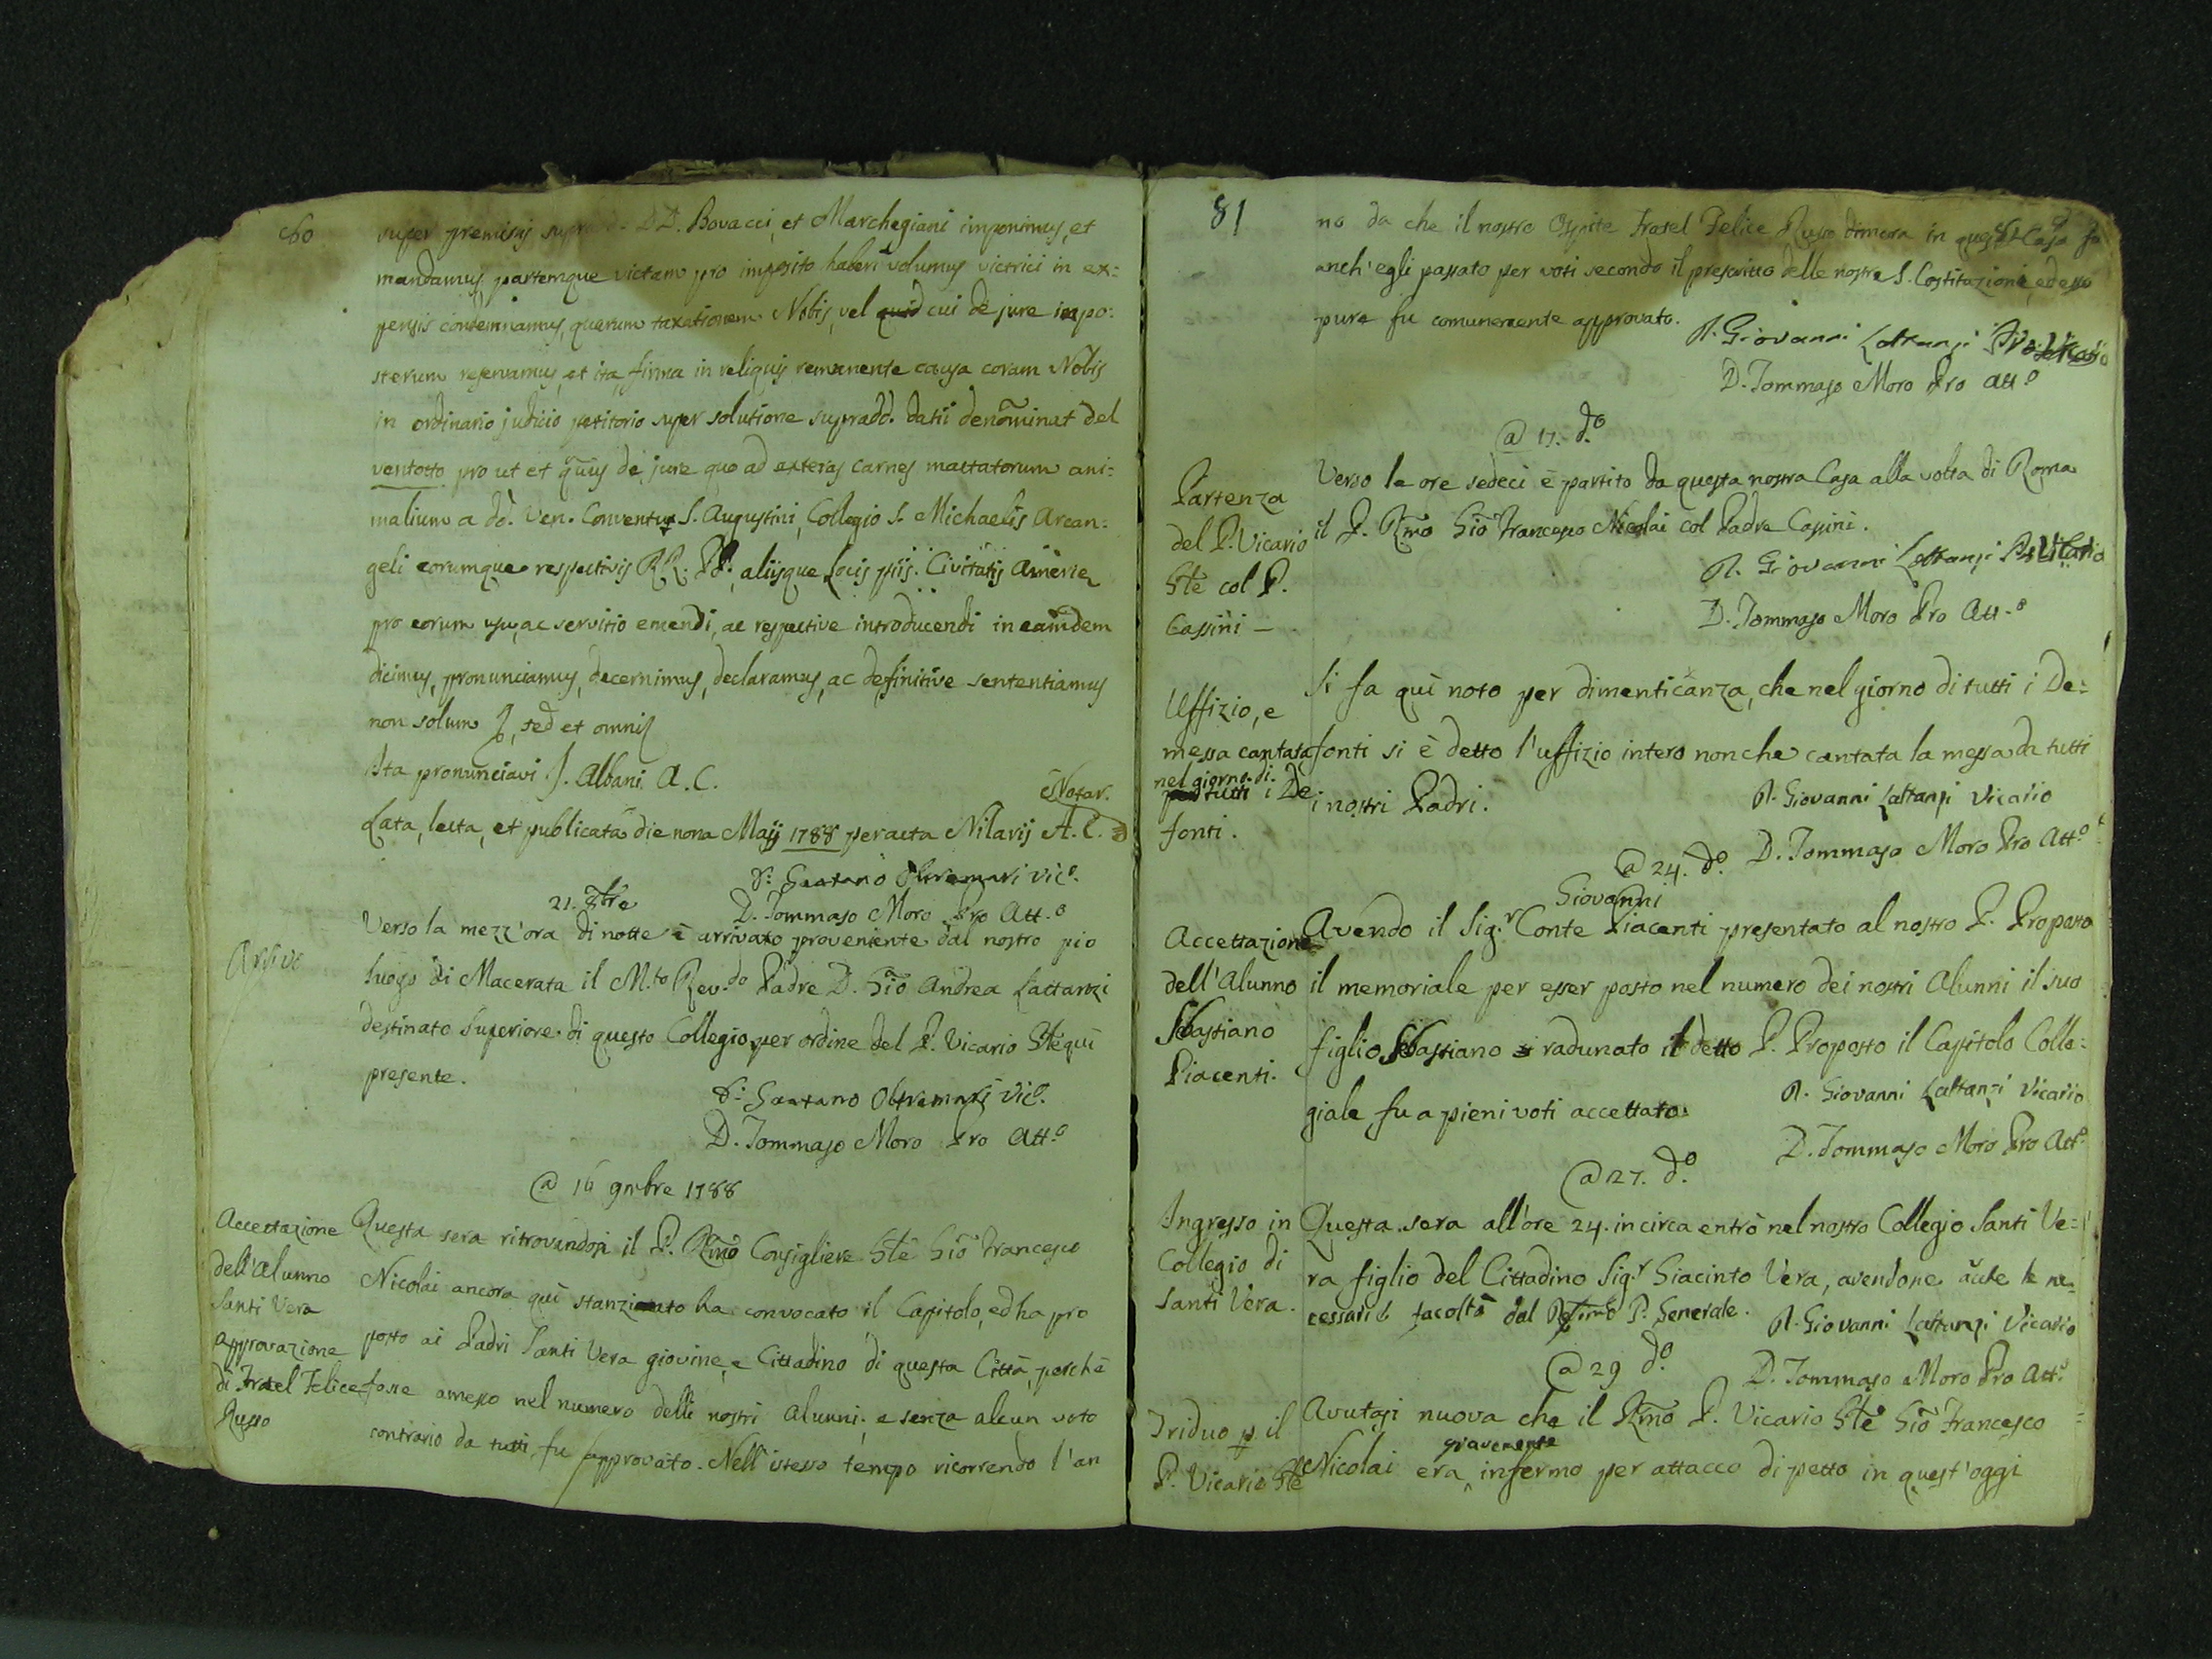 80
super premissis DD. Bovacci, et Marchegiani imponimus, et
mandamus, partemque victam pro imposito haberi volumus victrici in ex:
pensis condemnamus, quarum taxationem Nobis, vel cui de jure impo:
sterum reservamus, et ita firma in reliquis remanente causa coram Nobis
in ordinario judicio petitorio super solutione supradd. datii denominat del
ventotto pro ut et de jure quo ad exteras carnes mactatorum ani:
malium a dd. Ven. Conventus S. Augustini, Collegio S. Michaelis Arcan:
geli eorumque respectivis RR. PP. aliisque Locis piis Civitatis Ameriæ
pro eorum usu, ac servitio emendi, ac respective introducendi in eamdem
dicimus, pronunciamus, decernimus, declaramus, ac definitive sententiamus
non solum, sed et omni
Ita pronunciavi J. Albani A. C.
Lata, lecta, et publicata die nona Maij 1788 per acta Nilarij A. C. Notar.
D. Gaetano Oltremari Vic.º
21. 8bre
D. Tommaso Moro Pro Att.º
Arrivo
Verso la mezz'ora di notte è arrivato proveniente dal nostro pio
luogo di Macerata il M.to Rev.do Padre D. Gio Andrea Lattanzi
destinato Superiore di questo Collegio per ordine del P. Vicario Gle qui
presente.
D. Gaetano Oltremari Vic.º
D. Tommaso Moro Pro Att.º
@ 16 9mbre 1788
Accettazione
dell'Alunno
Santi Vera
approvazione
di Fratel Felice
Russo
Questa sera ritrovandosi il P. Rmo Consigliere Gle Gio Francesco
Nicolai ancora quì stanziato ha convocato il Capitolo, ed ha pro
posto ai Padri Santi Vera giovine, e Cittadino di questa Città, perchè
fosse amesso nel numero delli nostri Alunni; e senza alcun voto
contrario da tutti fu approvato. Nell'istesso tempo ricorrendo l'an
81
no da che il nostro Ospite Fratel Felice Russo dimora in questa Casa fu
anch'egli passato per voti secondo il prescritto delle nostre S. Costituzioni, ed esso
pure fu comunemente approvato.
P. Giovanni Lattanzi Vicario
D. Tommaso Moro Pro Att.º
@ 17. d.º
Partenza
del P. Vicario
Gle col P.
Cassini –
Verso le ore sedeci è partito da questa nostra Casa alla volta di Roma
il P. Rmo Gio Francesco Nicolai col Padre Cassini.
P. Giovanni Lattanzi Vicario
D. Tommaso Moro Pro Att.º
Uffizio, e
messa cantata
nel giorno di
tutti i De
fonti.
Si fa quì noto per dimenticanza, che nel giorno di tutti i De:
fonti si è detto l'uffizio intero nonche cantata la messa da tutti
i nostri Padri.
P. Giovanni Lattanzi Vicario
D. Tommaso Moro Pro Att.º
@ 24. d.º
Accettazione
dell'Alunno
Sebastiano
Piacenti.
Giovanni
Avendo il Sig.r Conte Piacenti presentato al nostro P. Proposto
il memoriale per esser posto nel numero dei nostri Alunni il suo
figlio Sebastiano radunato il detto P. Proposto il Capitolo Colle:
giale fu a pieni voti accettato.
P. Giovanni Lattanzi Vicario
D. Tommaso Moro Pro Att.º
@ 27. d.º
Ingresso in
Collegio di
Santi Vera.
Questa sera all'ore 24. in circa entrò nel nostro Collegio Santi Ve:
ra figlio del Cittadino Sig.r Giacinto Vera, avendone aute le ne
cessarie facoltà dal P. Generale.
P. Giovanni Lattanzi Vicario
D. Tommaso Moro Pro Att.º
@ 29 d.º
Triduo p. il
P. Vicario Gle
Avutasi nuova che il Rmo P. Vicario Gle Gio Francesco
Nicolai era gravemente infermo per attacco di petto in quest'oggi